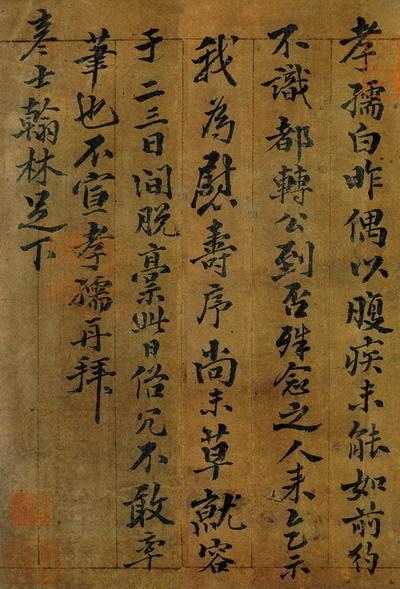 孝孺白昨偶以腹疾未能如前約
不識都轉公到否殊念之人來乞示
我為慰壽序尚未草就容
于二三日間脫藁此日俗冗不敢率
筆也不宣孝孺再拜
彥士翰林足下